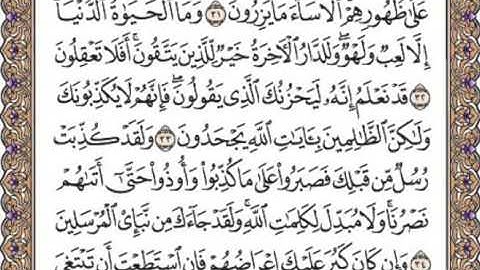 عَلَىٰ ظُهُورِهِمْ أَلَا سَآءَ مَا يَزِرُونَ ٣١ وَمَا ٱلْحَيَوٰةُ ٱلدُّنْيَآ
إِلَّا لَعِبٌ وَلَهْوٌ وَلَلدَّارُ ٱلْأَخِرَةُ خَيْرٌ لِّلَّذِينَ يَتَّقُونَ أَفَلَا تَعْقِلُونَ
٣٢ قَدْ نَعْلَمُ إِنَّهُۥ لَيَحْزُنُكَ ٱلَّذِى يَقُولُونَ فَإِنَّهُمْ لَا يُكَذِّبُونَكَ
وَلَٰكِنَّ ٱلظَّٰلِمِينَ بِـَٔايَٰتِ ٱللَّهِ يَجْحَدُونَ ٣٣ وَلَقَدْ كُذِّبَتْ
رُسُلٌ مِّن قَبْلِكَ فَصَبَرُوا۟ عَلَىٰ مَا كُذِّبُوا۟ وَأُوذُوا۟ حَتَّىٰٓ أَتَىٰهُمْ
نَصْرُنَا وَلَا مُبَدِّلَ لِكَلِمَٰتِ ٱللَّهِ وَلَقَدْ جَآءَكَ مِن نَّبَإِى۟ ٱلْمُرْسَلِينَ
٣٤ وَإِن كَانَ كَبُرَ عَلَيْكَ إِعْرَاضُهُمْ فَإِنِ ٱسْتَطَعْتَ أَن تَبْتَغِىَ